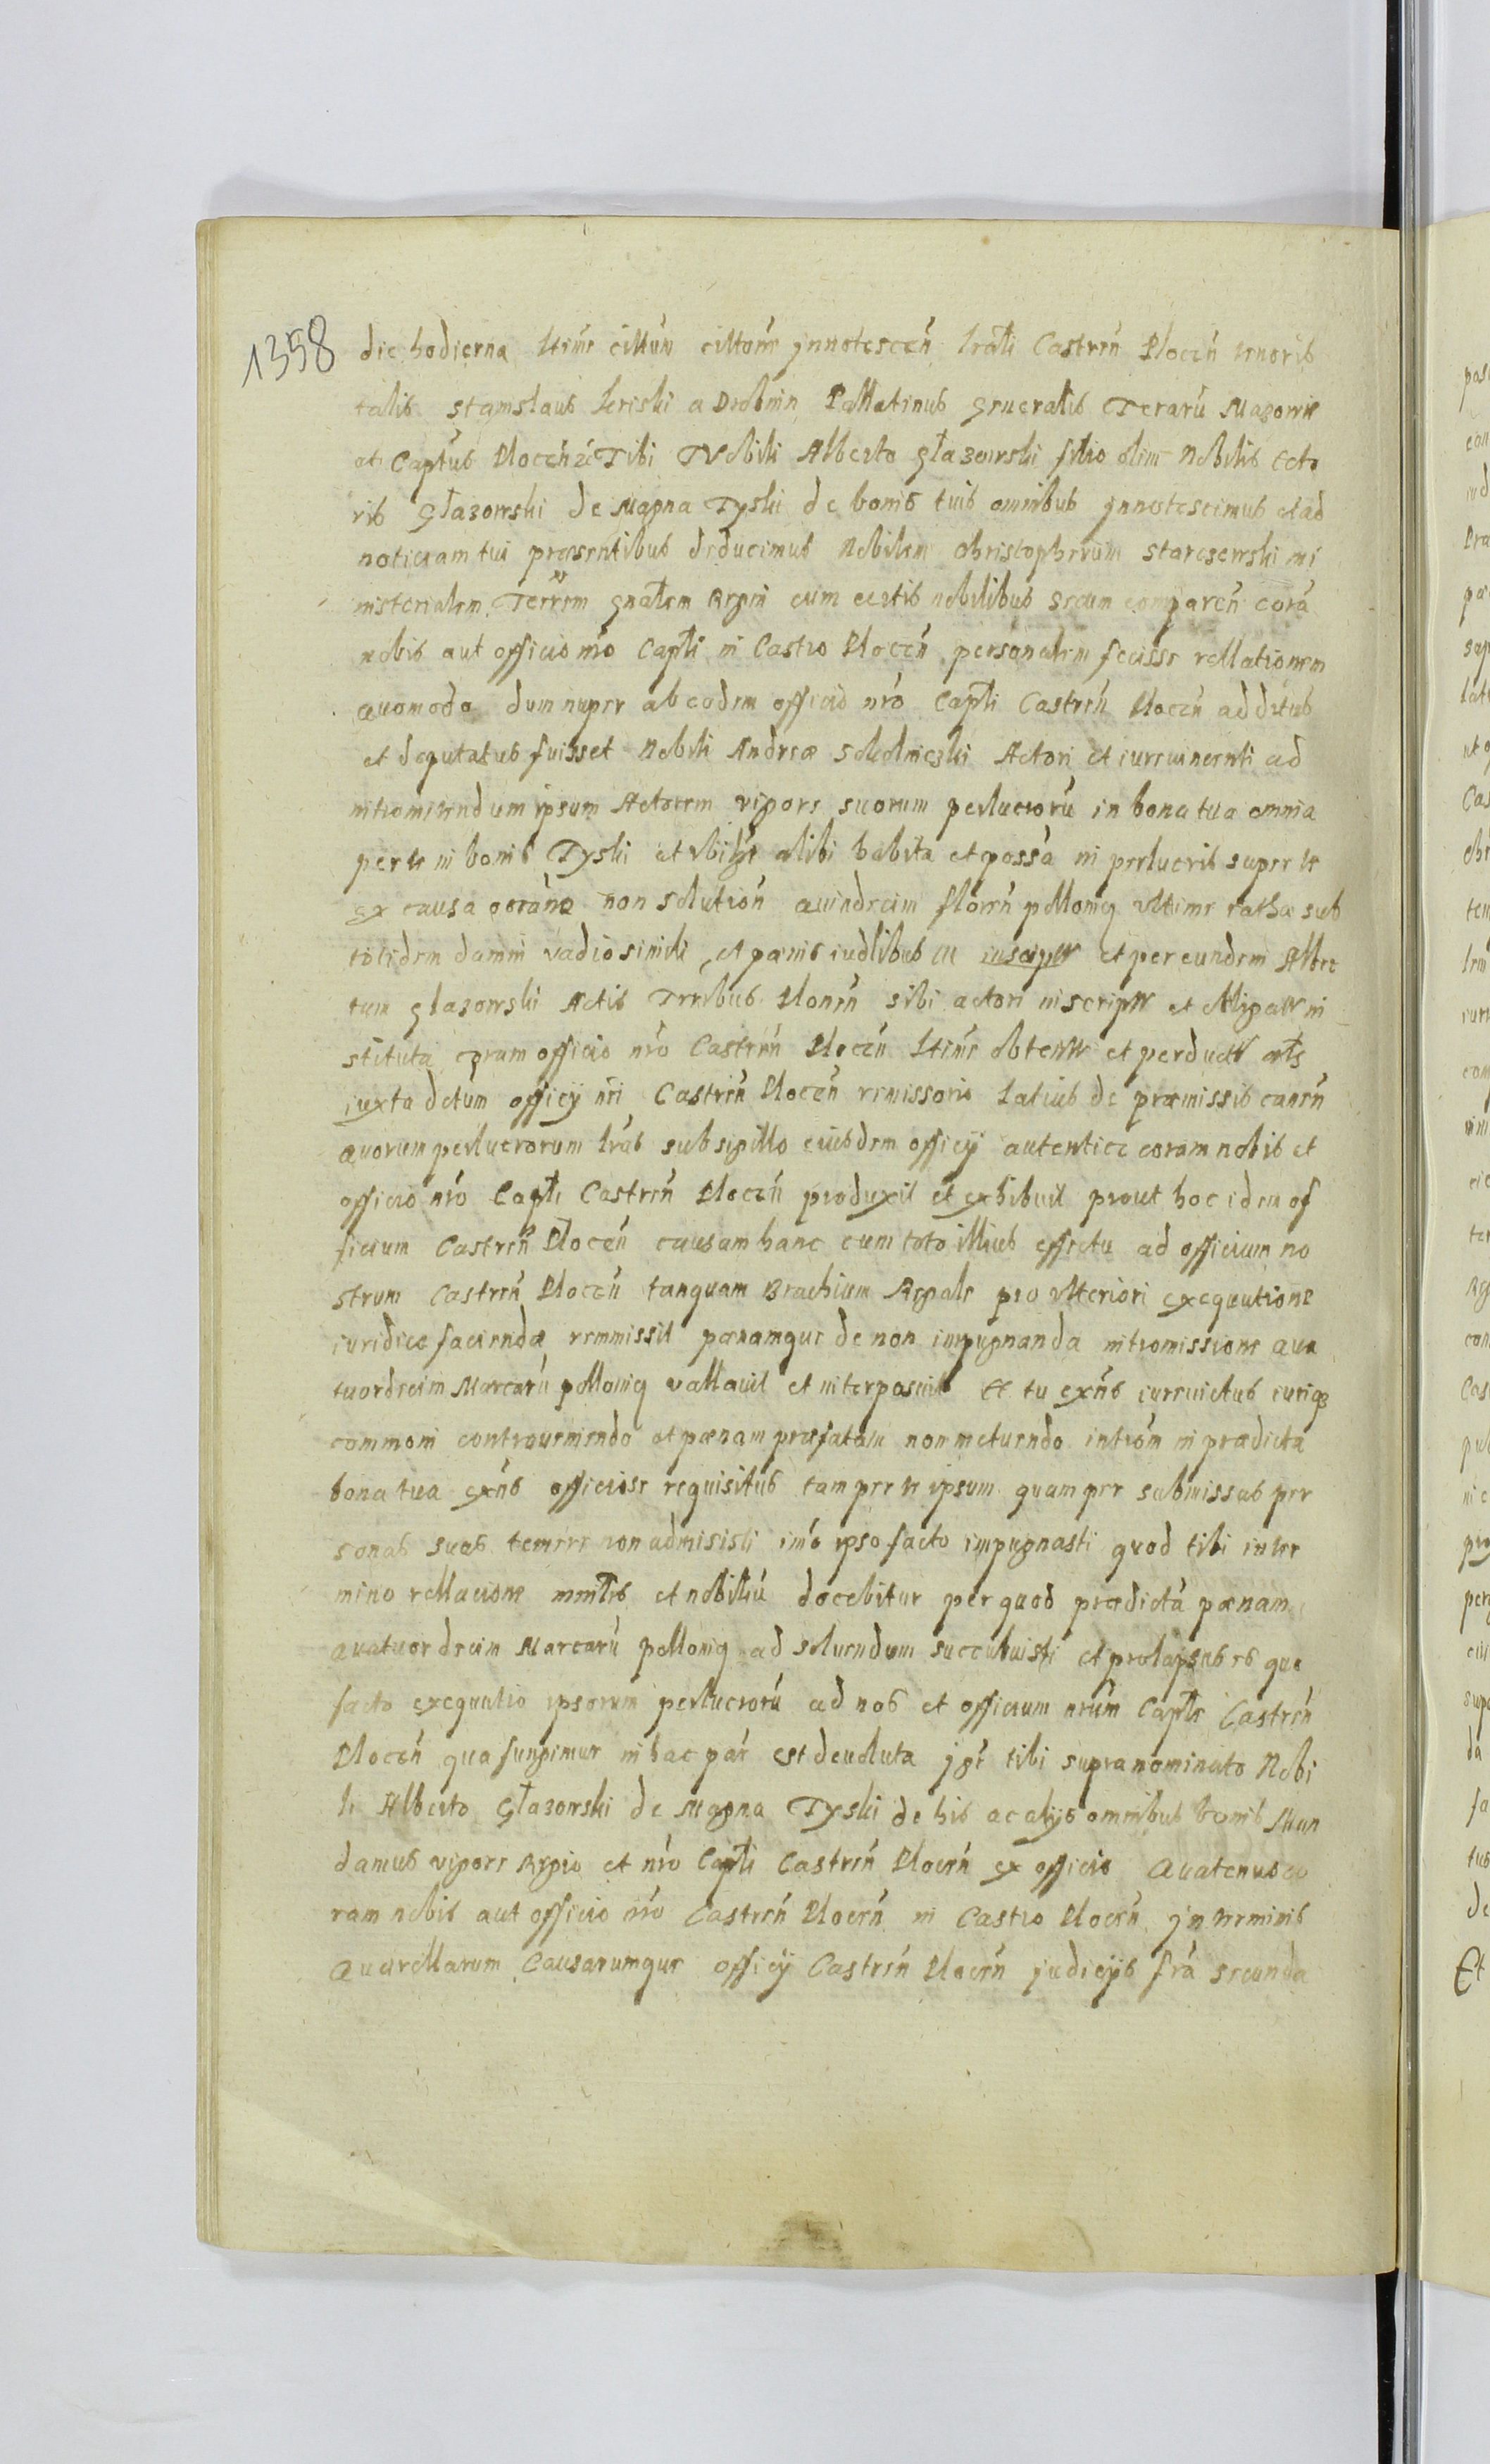 1358
die hodierna ltime cittuw cittone jnnotescen lrali Castren Plocen tenoris
talis Stanislaus Kriski a Drobnin Pallatinus Generalis Teraru Mazowie
at Captus Plocen zc Tibi Nobili Alberto Głazowski filio olim Nobilis Ecto
ris Głazowski de Magna Tyski de bonis tuis omnibus jnnotescimus et ad
noticiam tui præsentibus deducimus Nobilem Christopherum Starczewski mi
nisterialem Terrem gnalem Regni cum certis nobilibus secum comparen corã
nobis aut officio nro Captli in Castro Plocen personalem fecisse rellationem
Quomodo dum nuper ab eodem officio nro Captli Castren Plocen additus
et deputatus fuisset Nobili Andreæ Sokolniczki Actori et iurevincenti ad
intromittendum ipsum Actorem vigore suorum perlucroru in bona tua omnia
per te in bonis Tyski et vbihet alibi habita et possa in perlucris super te
ex causa non solution quindecim floren pollonig vltime rathæ sub
totidem damni vadio simili et pœnis iudlibus in inscriptt et per eundem Alber
tum Głazowski Actis Trribus Plonen sibi actori inscriptt et obligatt in
stituta coram officio nro Castren Plocen ltime obtentt et perductt alls
iuxta detum officij nri Castren Plocen remissorio latius de præmissis canen
Quorum perlucrorum lras sub sigillo eiusdem officij autentice coram nobis et
officio nro Captli Castren Plocen produxit et exhibuit prout hoc idem of
ficium Castren Plocen causam hanc cum toto illius effectu ad officium no
strum Castren Plocen tanquam Brachium Regale pro vlteriori exequutione
iuridice faciendæ remmissit pœnamque de non impugnanda intromissione qua
tuordecim Marcaru pollonig vallavit et interposuit Et tu exns iurevictus iurique
commoni contraveniendo et pœnam præfatam non metuendo introm in prædicta
bona tua exns officiose requisitus tam per te ipsum quam per submissas per
sonas suas temere non admisisti imo ipso facto impugnasti quod tibi in ter
mino rellacione mintlis et nobiliu docebitur per quod prædicta pœnam
Quatuordecim Marcaru pollonig ad soluendum succubuisti et prolapsus es quo
facto exequutio ipsorum perlucroru ad nos et officium nrum Captle Castren
Plocen qua fungimur in hac par est deuoluta jgr tibi supranominato Nobi
li Alberto Głazowski de Magna Tyski de his ac alijs omnibus bonis Man
damus vigore Regio et nro Captli Castren Plocen ex officio Quatenus co
ram nobis aut officio nro Castren Plocen in Castro Plocen jn terminis
Querellarum Causarumque officij Castren Plocen judicijs fra secunda